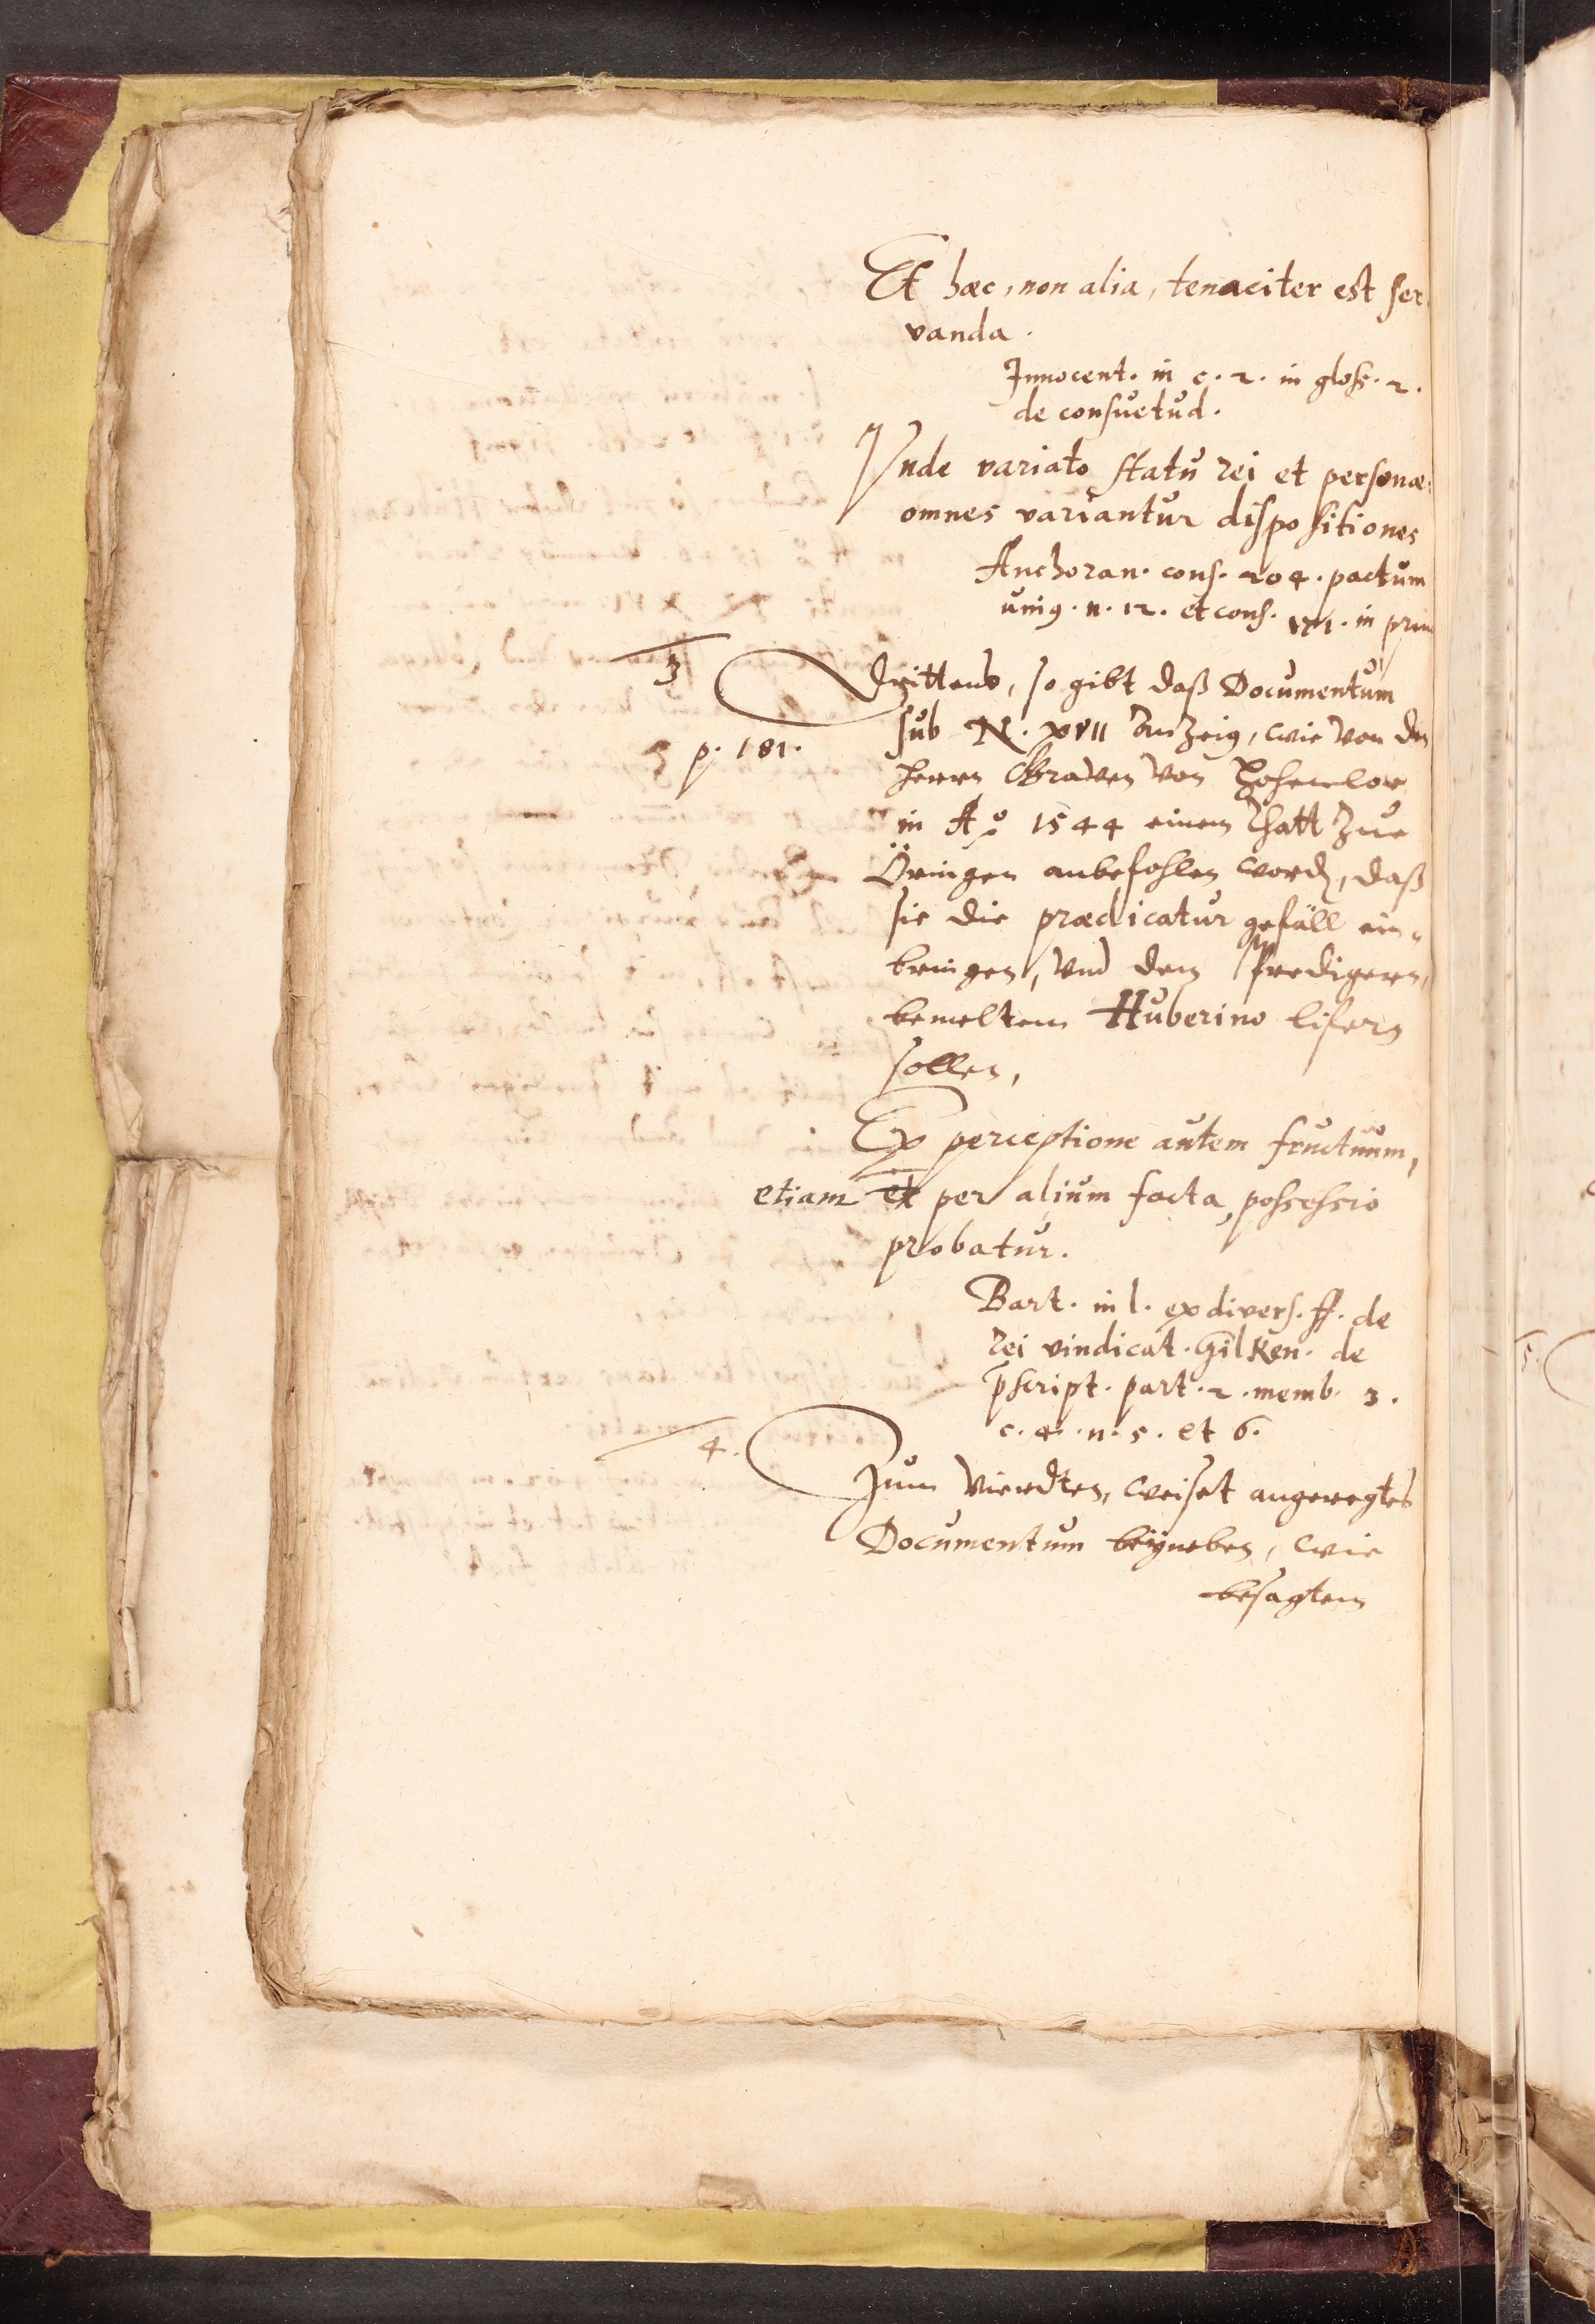 Et hæc, non alia, tenaciter est ser-
vanda.
Innocent. in c. 2. in gloss. 2.
de consuetud.
Vnde variato statu rei et personæ
omnes variantur dispositiones
Anchoran. cons. 204. pactum
unius. n. 12. et cons. in prin
3 Drittens, so gibt daß Documentum
sub N. XVII Anzeig, wie von den
3 p. 181.
Herrn Graven von Hohenloe
in Ao 1544 einem Rhatt zue
Öringen anbefohlen word, daß
sie die prædicatur gefäll ein-
bringen, vnd dem Predigern,
bemeltem Huberino lifern
sollen,
Ex perceptione autem fructuum,
etiam et per alium facta, possessio
probatur.
Bart. in l. ex divers. ff. de
rei vindicat. Gilken. de
pscript. part. 2. memb. 3.
c. 4. n. 5. et 6.
4. Zum Vierdten, weiset angeregtes
Documentum beyneben, wie
besagtem
5.